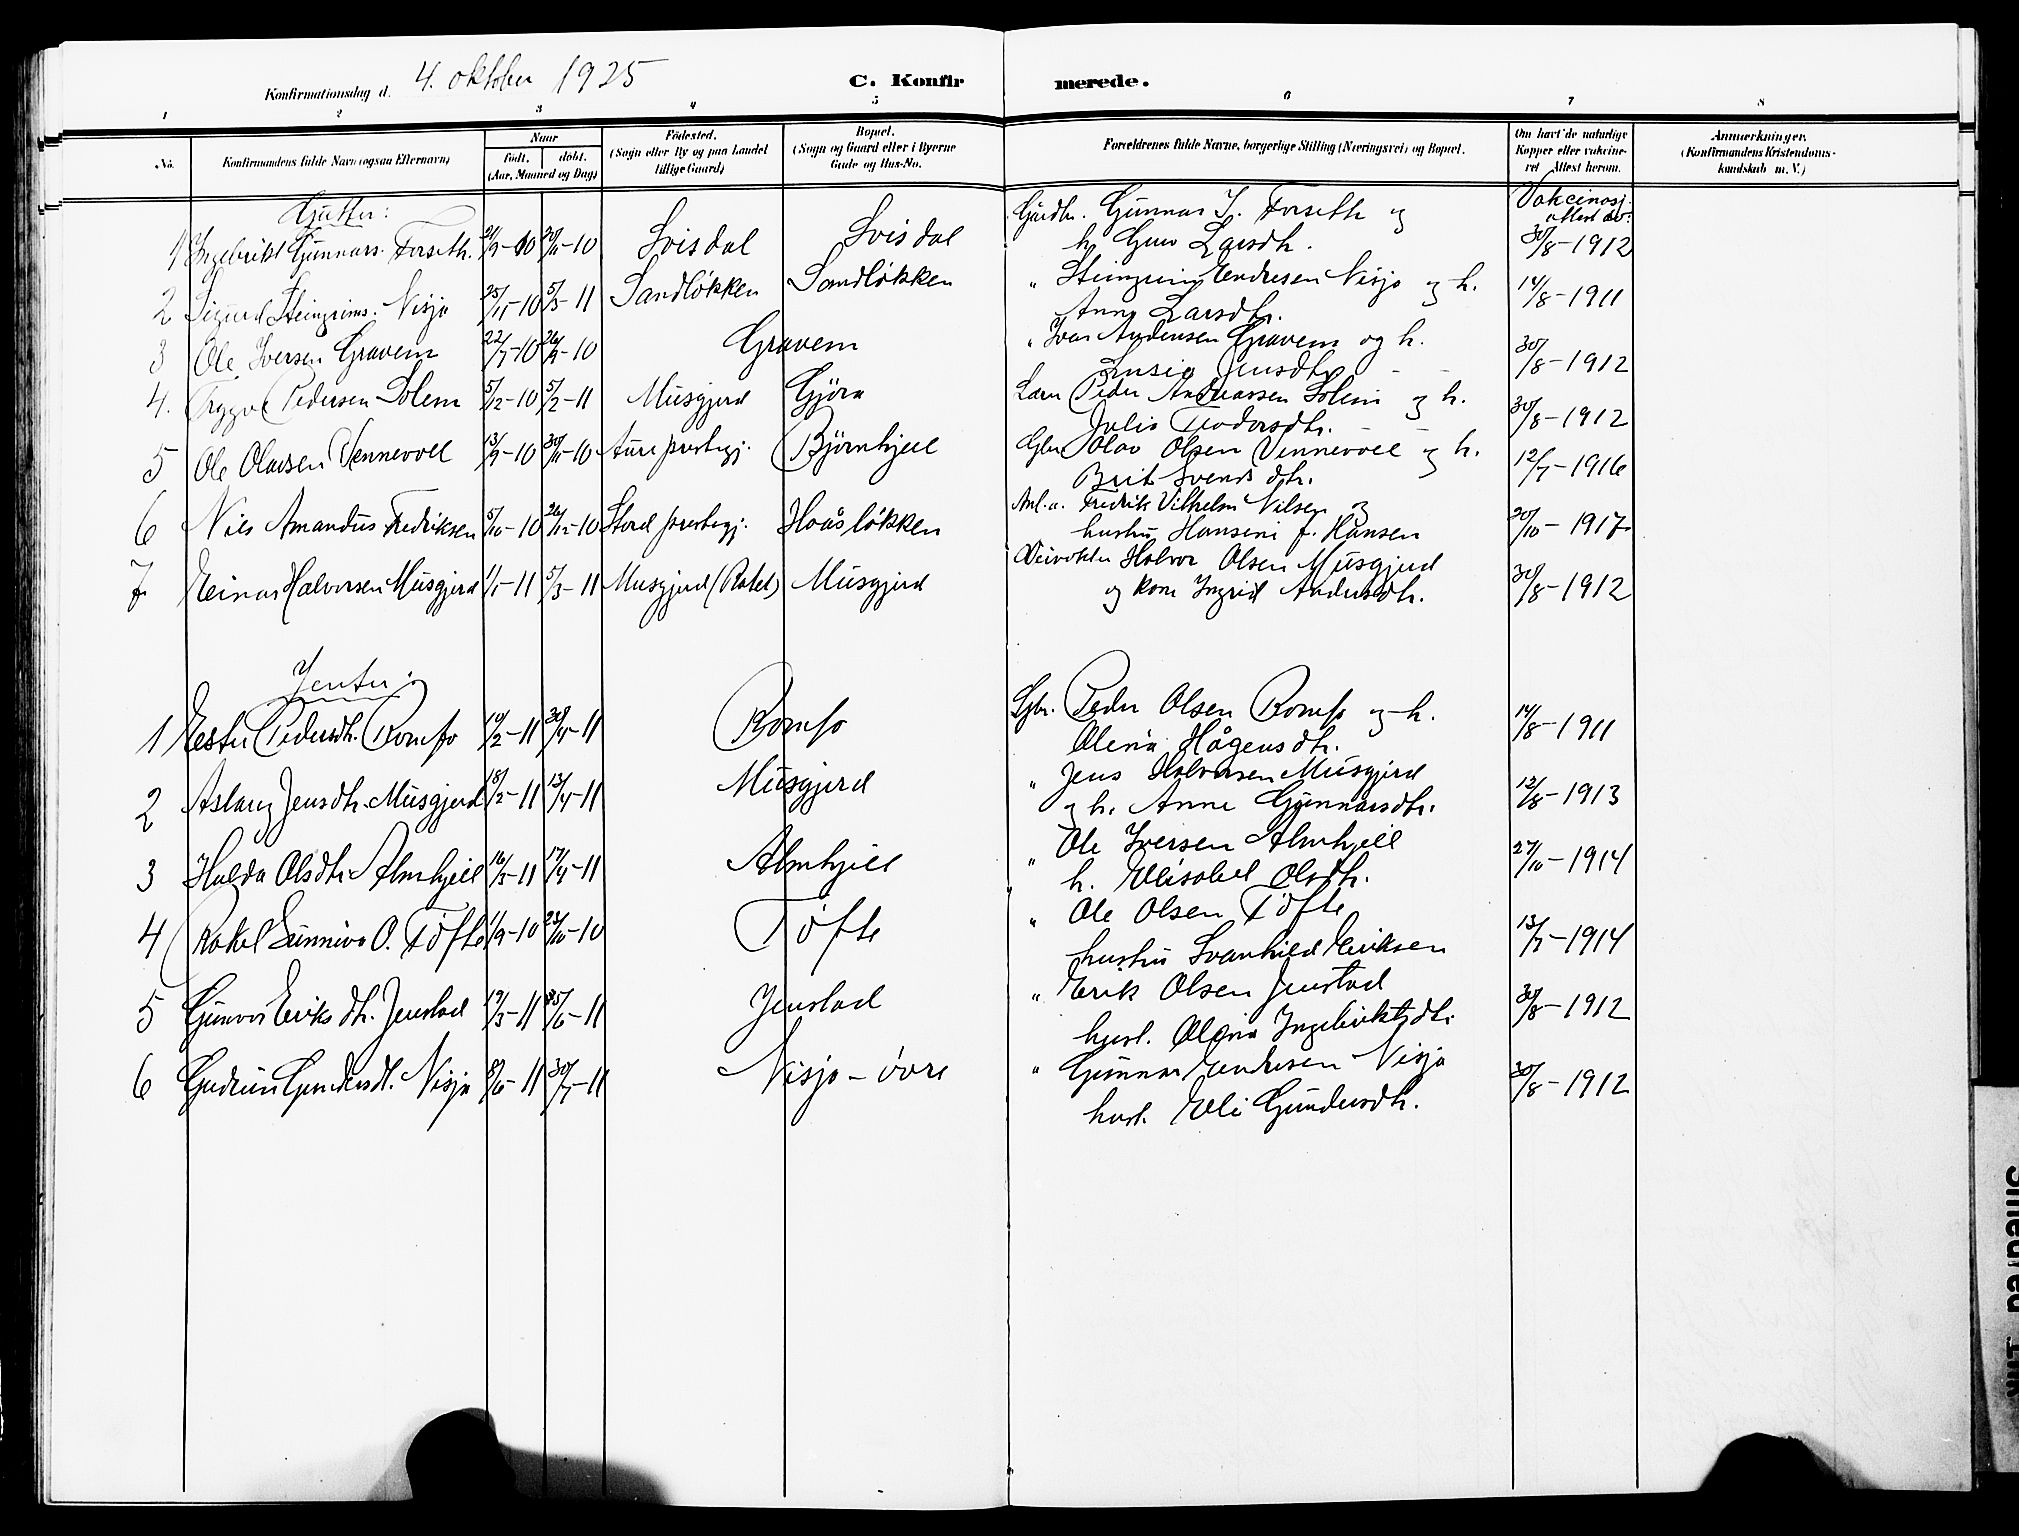 Konfirmationsdag d. 4. oktober 1925
C. Konfirmerede.
1 2 3 4 5 6 7 8
No.
Konfirmandens fulde Navn (ogsaa Efternavn)
Naar
født. døbt.
(Aar, Maaned og Dag)
Fødested.
(Sogn eller By og paa Landet tillige Gaard)
Bopæl.
(Sogn og Gaard eller i Byerne Gade og Hus-No.
Forældrenes fulde Navne, borgerlige Stilling (Næringsvei) og Bopæl.
Om havt de naturlige Kopper eller vakcineret. Attest herom.
Anmærkninger.
(Konfirmandens Kristendomskundskab m. V.)
Gutter:
Vakcinasj. attest av:
1 Ingebrikt Gunnars. Forseth. 21/9-10 20/11-10 Svisdal Svisdal Gardbr. Gunnar I. Forseth og
h. Guro Larsdh. 30/8-1912
2 Sigurd Steingrims. Nisja 25/11-10 5/3-11 Sandløkken Sandløkken " Steingrim Endresen Nisja og h.
Anne Larsdh. 14/8-1911
3 Ole Iversen Gravem 22/7-10 26/9-10 Gravem " Ivar Andersen Gravem og h.
Jensdh. 30/8-1912
4. Trygve Pedersen Solem 5/12-10 5/2-11 Musgjerd Gjøra Peder Andreassen Solem og h.
Julie 30/8-1912
5 Ole Olavsen Vennevoll 13/9-10 30/11-10 Aure prestegj. Bjørnhjell Gbr. Olav Olsen Vennevoll og h.
Brit Svendsdh. 12/7-1916
6 Nils Amandus Fredriksen 5/10-10 26/12-10 Stord prestegj. Hoåsløkken Anl. a. Fredrik Vilhelm Nilsen og
hustru Hansine f. Hansen 20/10-1917
7 Einar Halvorsen Musgjerd 1/1-11 5/3-11 Musgjerd (Raket) Musgjerd Veivokter Halvor Olsen Musgjerd
og kone Ingrid Andersdh. 30/8-1912
Jenter:
1 Ester Pedersdh. Romfo 10/2-11 30/4-11 Romfo Gbr. Peder Olsen Romfo og h.
Olena Hågensdh. 14/8-1911
2 Aslaug Jensdh. Musgjerd 18/2-11 13/4-11 Musgjerd " Jens Halvorsen Musgjerd
og h. Anne Gunnarsdh. 12/8-1913
3 Halda Olsdh. Almhjell 16/3-11 17/4-11 Almhjell " Ole Iversen Almhjell
h. Elisabet Olsdh. 27/10-1914
4 Rakel Sunniva O. Tøfte 1/9-10 23/10-10 Tøfte " Ole Olsen Tøfte
hustru Svanhild Eriksen 13/7-1914
5 Gunvor Eriksdh. Jenstad 19/3-11 25/6-11 Jenstad " Erik Olsen Jenstad
hust. Olena Ingebriktsdh. 30/8-1912
6 Gudrun Gunnarsdt. Nisja 8/6-11 30/7-11 Nisja - øvre " Gunnar Endresen Nisja
hust. Eli Gundersdh. 30/8-1912